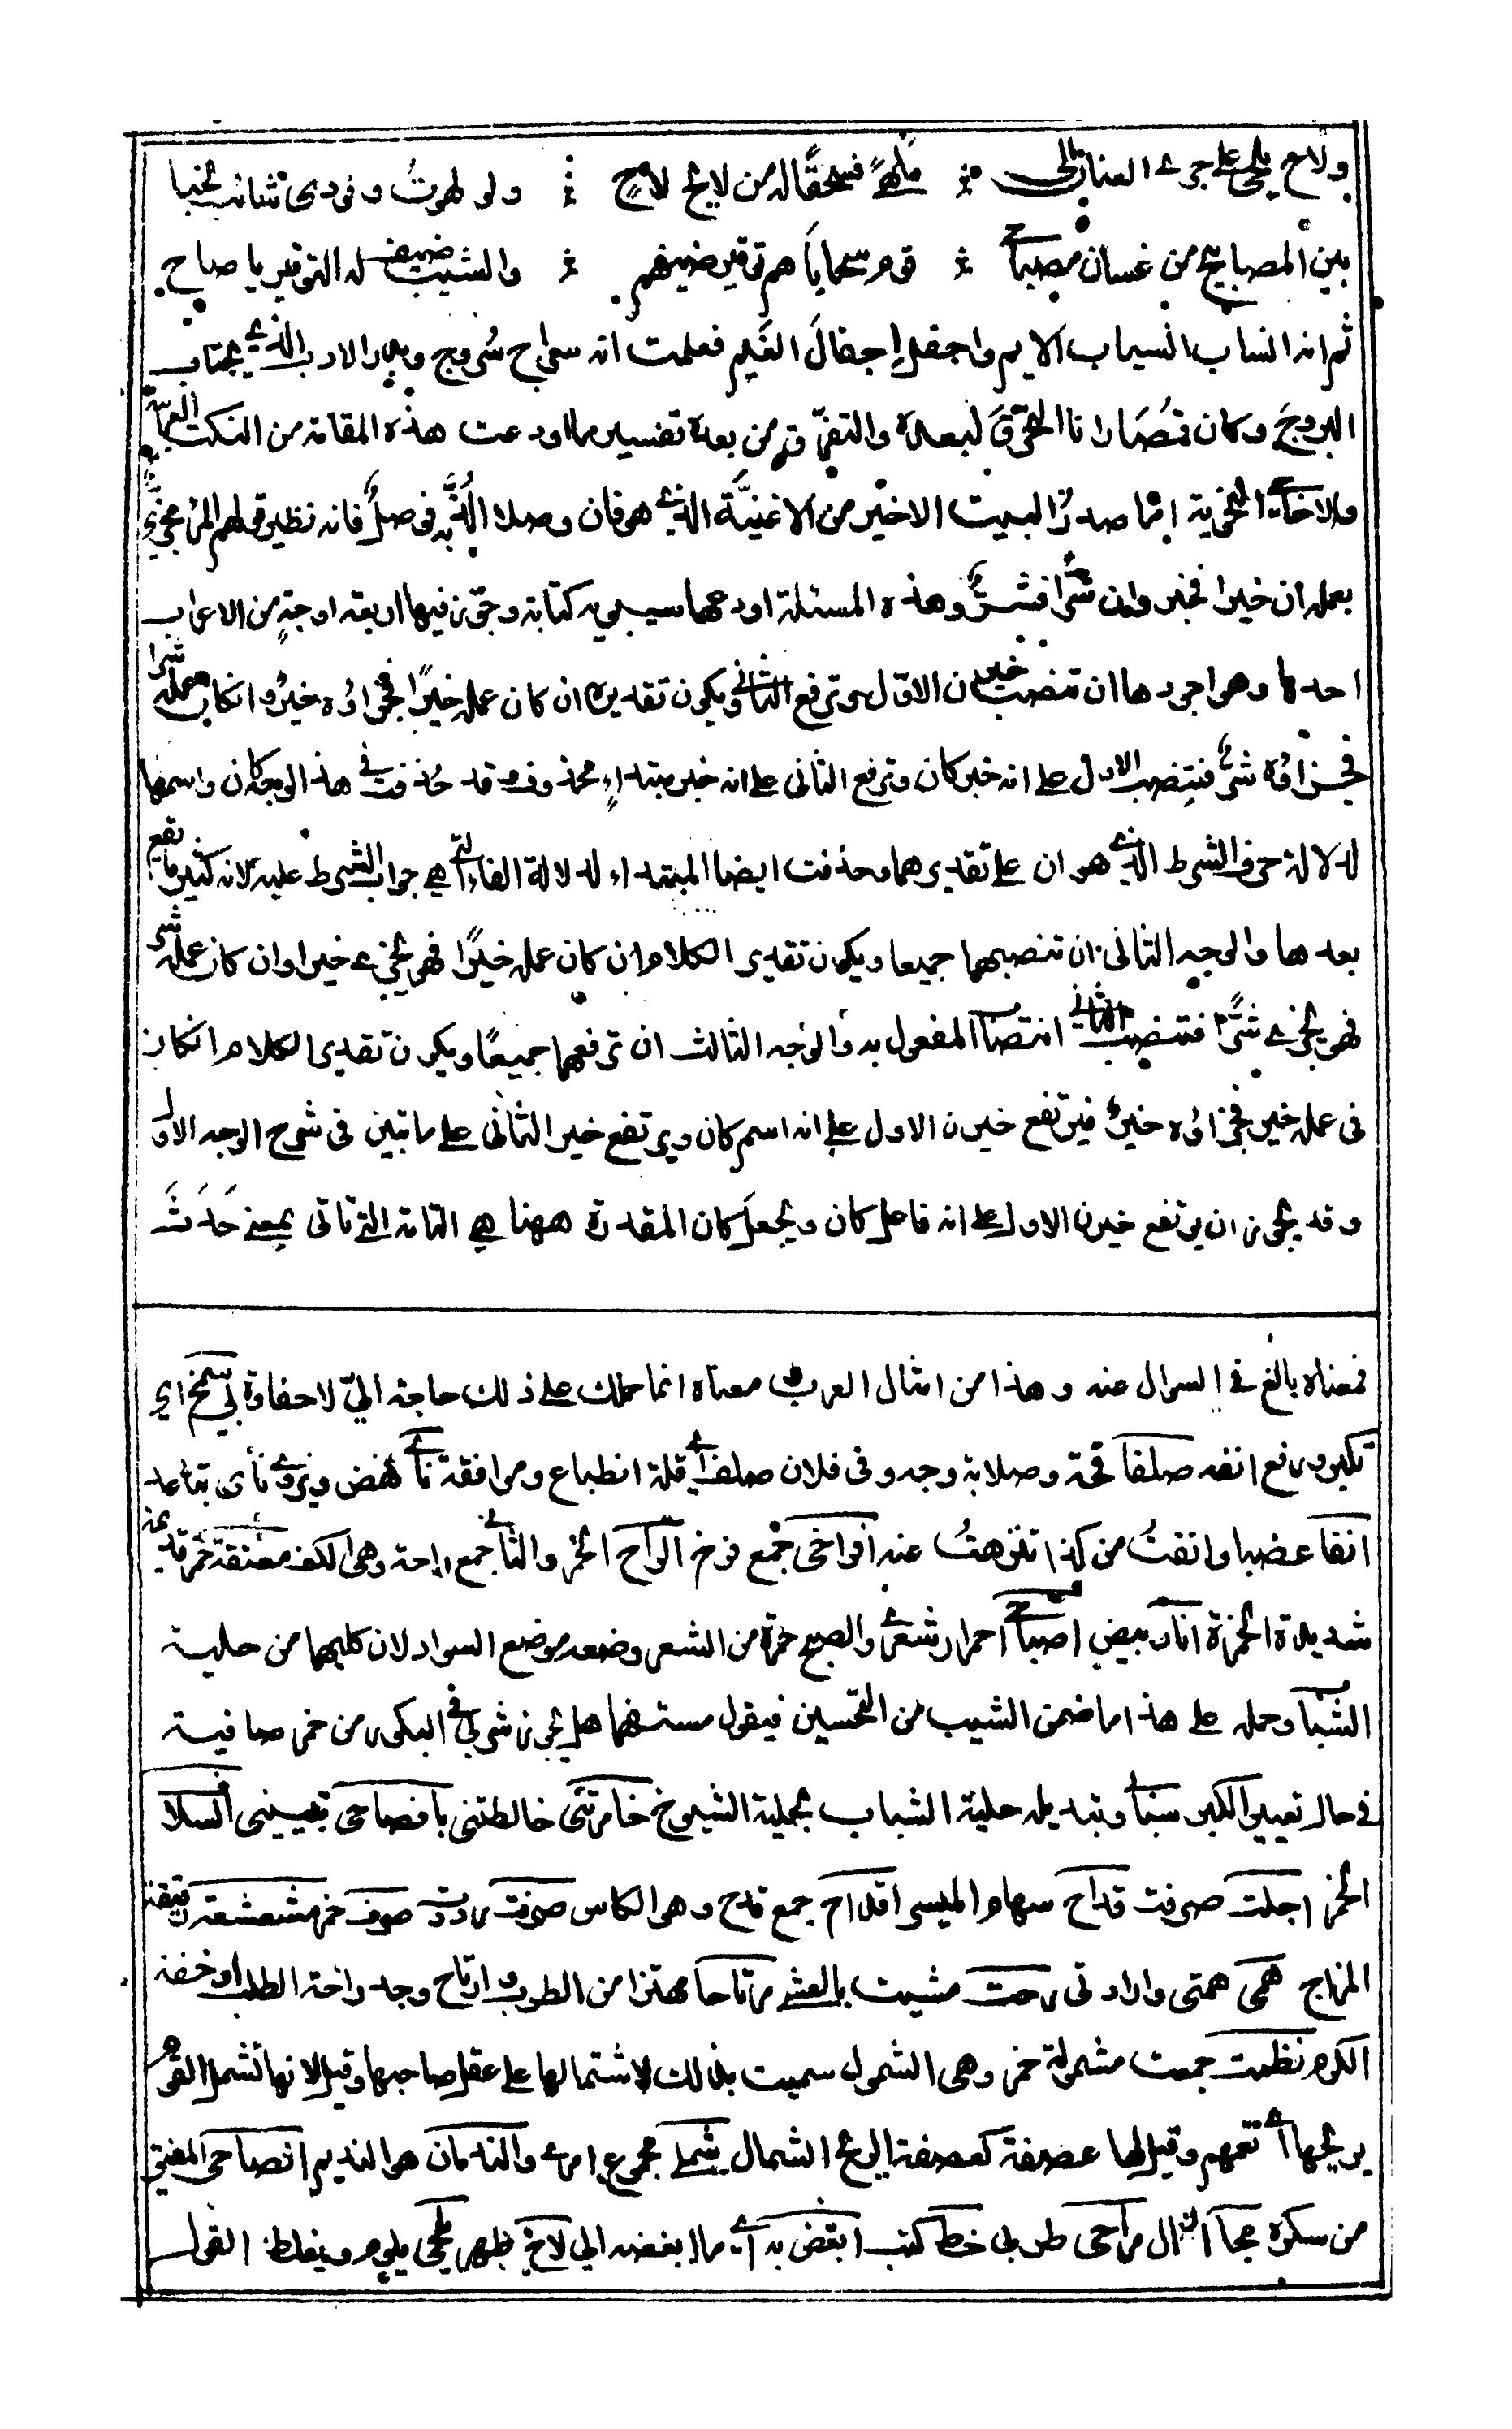 ولاح يلحى على جرى العنان إلى ملهى فسحقا له من لايح لاح ولو لهوت وفودى شائب لخبا
بين المصابيح من غسان مصباح قوم سجاياهم توقير ضيفهم والشيب ضيف له التوقير يا صاح
ثم انه انساب انسياب الايم واجفل إجفال الغيم فعلمت انه سراج سروج وبدر الادب الذي يجتاب
البروج وكان قصارانا التحرق لبعده والتفرق من بعده تفسير ما اودعت هذه المقامة من النكت العربية
والاحاجي النحوية اما صدر البيت الاخير من الاغنية الذي هو فان وصلا الذ به فوصل فانه نظير قولهم المرء مجزي
بعمله ان خيرا فخير وان شرا فشر وهذه المسئلة اودعها سيبويه كتابه وجوز فيها اربعة اوجه من الاعراب
احدها وهو اجودها ان تنصب خيرن الاول وترفع الثاني ويكون تقديره ان كان عمله خيرًا فجزاؤه خير وانكان عمله شرا
فجزاؤه شر فتنصب الاول على انه خبر كان وترفع الثاني على انه خبر مبتداء محذوف وقد حذفت في هذا الوجه كان واسمها
لدلالة حرف الشرط الذي هو ان على تقديرهما وحذفت ايضا المبتداء لدلالة الفاء التي هي جواب الشرط عليه لانه كثير ما تقع
بعدها والوجه الثاني ان تنصبهما جميعا ويكون تقدير الكلام ان كان عمله خيرًا فهو يجزى خيرا وان كان عمله شرا
فهو يجزى شرًا فتنصب الثاني انتصاب المفعول به والوجه الثالث ان ترفعهما جميعًا ويكون تقدير الكلام انكان
في عمله خير فجزاؤه خير فيرتفع خيرن الاول على انه اسم كان ويرتفع خير الثاني على ما تبين في شرح الوجه الاول
وقد يجوز ان يرتفع خيرن الاول على انه فاعل كان ويجعل كان المقدرة ههنا هي التامة التي تاتي بمعنى حَدَثَ
فمعناه بالغ في السوال عنه وهذا من امثال العرب معناه انما حملك على ذلك حاجة اليّ لا حفاوة بي شمخ اي
تكبر ورفع انفه صلفا قحة وصلابة وجه وفي فلان صلف اي قلة انطباع وموافقة ناء نهض ويروى نأى تباعد
انفا غضبا وانفت من كذا تنزهت عنه افراخى جمع فرخ الراح الخمر والثاني جمع راحة وهي الكف معتقة خمر قديمة
شديدة الحمرة انار بيض اصباح احمرار شعري والصبح حمرة من الشعر وضعه موضع السواد لان كليهما من حلية
الشباب وحمله على هذا ما ضمن الشيب من التحسين فيقول مستفهما هل يجوز شربي في البكور من خمر صافية
في حال تغيير الكبر شبابي وتبديله حلية الشباب بحلية الشيوخ خامرتنى خالطتنى بافصاحى تبيينى السلاف
الخمر اجلت صرفت قداح سهام الميسر اقداح جمع قدح وهو الكاس صرفت رددت صرف خمر مشعشعة رقيقة
المزاج همى همتى وارادتى رحت مشيت بالعشى مرتاحا مهتزا من الطرب وارتاح وجد راحة الطلب او خفة
الكرم نظمت جمعت مشمولة خمر وهي الشمول سميت بذلك لاشتمالها على عقل صاحبها وقيل لانها تشمل القوم
بريحها اي تعمهم وقيل لها عصفة كعصفة الريح الشمال شملي مجموع امري والندمان هو النديم اصاحى المفيق
من سكره عجا ال مراحى طربى خط كتب ابغض به اي ما ابغضه الي لاح ظهر يلحى يلوم ويغلظ القول